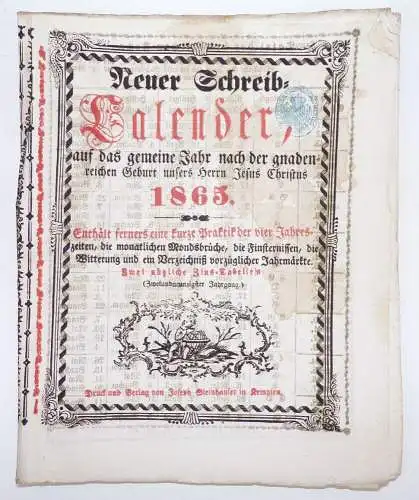 Neuer Schreib-
Calender,
auf das gemeine Jahr nach der gnaden-
reichen Geburt unsers Herrn Jesus Christus
1865.
Enthält ferners eine kurze Praktik der vier Jahrs-
zeiten, die monatlichen Mondsbrüche, die Finsternissen, die
Witterung und ein Verzeichniß vorzüglicher Jahrmärkte.
Zwei nützliche Zins-Tabellen
(Zweiundzwanzigster Jahrgang.)
Druck und Verlag von Joseph Steinhauser in Kempten.